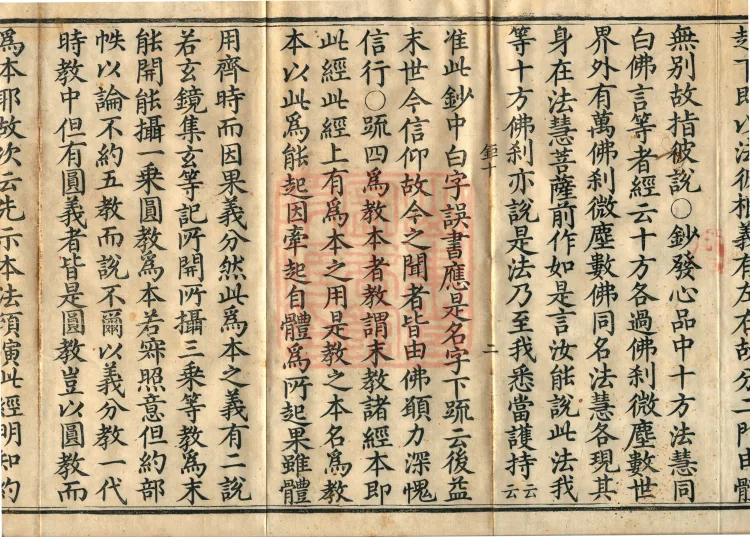 無別故指彼說○鈔發心品中十方法慧同
白佛言等者經云十方各過佛刹微塵數世
界外有萬佛刹微塵數佛同名法慧各現其
身在法慧菩薩前作如是言汝能說此法我
等十方佛刹亦說是法乃至我悉當護持云云
鉅十 二
准此鈔中白字誤書應是名字下䟽云後益
末世令信仰故今之聞者皆由佛願力深愧
信行○䟽四爲教本者教謂末教諸經本即
此經此經上有爲本之用是教之本名爲教
本以此爲能起因牽起自體爲所起果雖體
用齊時而因果義分然此爲本之義有二說
若玄鏡集玄等記所開所攝三乗等教爲末
能開能攝一乗圓教爲本若㝥照意但約部
帙以論不約五教而說不爾以義分教一代
時教中但有圓義者皆是圓教豈以圓教而
爲本耶故次云先示本法須寅此經明知約